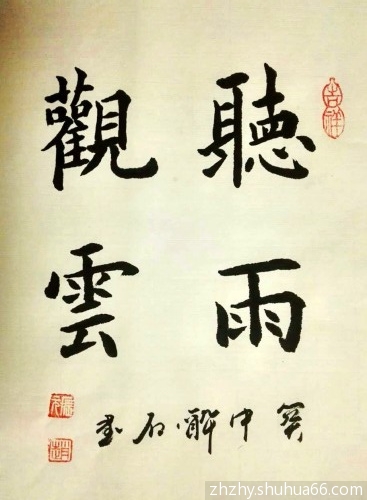 吉祥
聽雨
觀雲
中醉石書
zhzhy.shuhua66.com